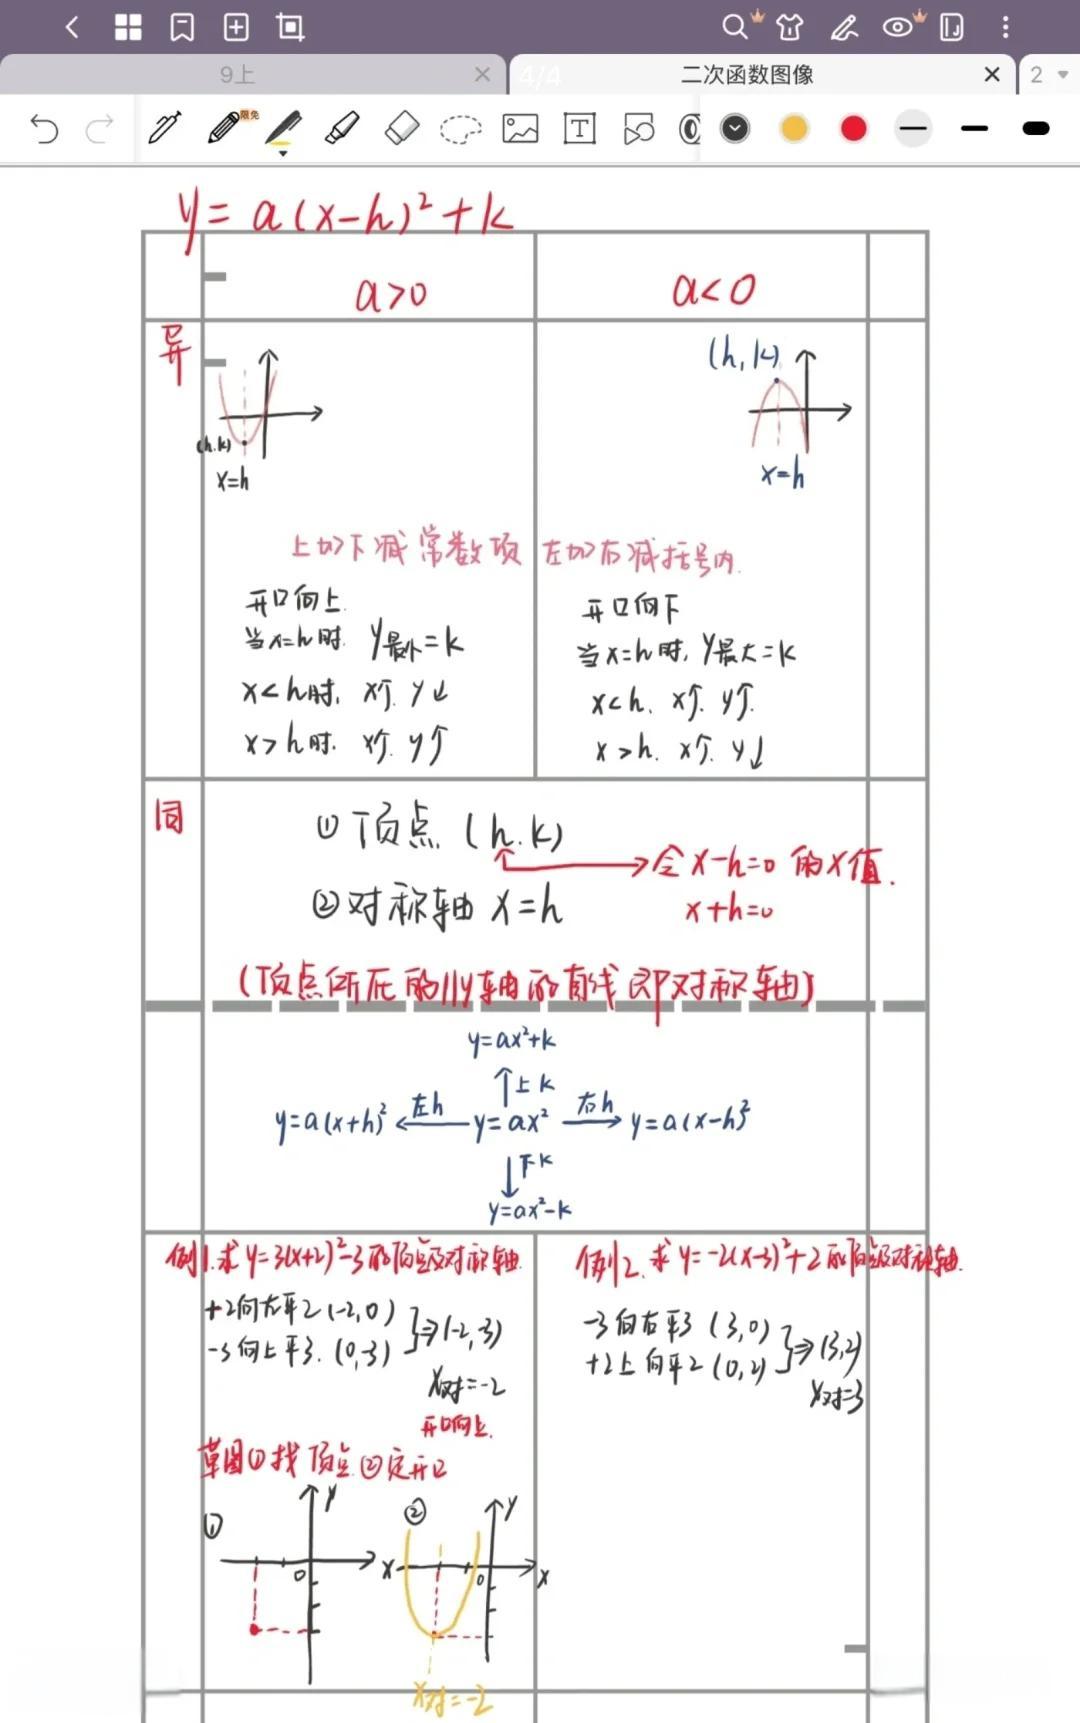 9上
4/4
二次函数图像
2
限免
y=a(x-h)²+k
a>0
a<0
异
(h.k)
x=h
(h,k)
x=h
上加下减常数项 左加右减括号内.
开口向上.
当x=h时. y最小=k
x<h时, x↑. y↓
x>h时. x↑. y↑
开口向下
当x=h时, y最大=k
x<h. x↑. y↑.
x>h. x↑. y↓
同
①顶点 (h.k)
令x-h=0的x值.
x+h=0
②对称轴 x=h
(顶点所在的//y轴的直线即对称轴)
y=ax²+k
↑上k
y=a(x+h)² ←左h— y=ax² —右h→ y=a(x-h)²
↓下k
y=ax²-k
例1.求y=3(x+2)²-3的顶点及对称轴.
+2向左平2(-2,0)
-3向上平3.(0,-3)
}⇒(-2,-3)
x对=-2
开口向上.
草图①找顶点②定开口
①
y
O
x
②
y
O
x
x对=-2
例2.求y=-2(x-3)²+2的顶点及对称轴.
-3向右平3 (3,0)
+2上向平2(0,2)
}⇒(3,2)
x对=3